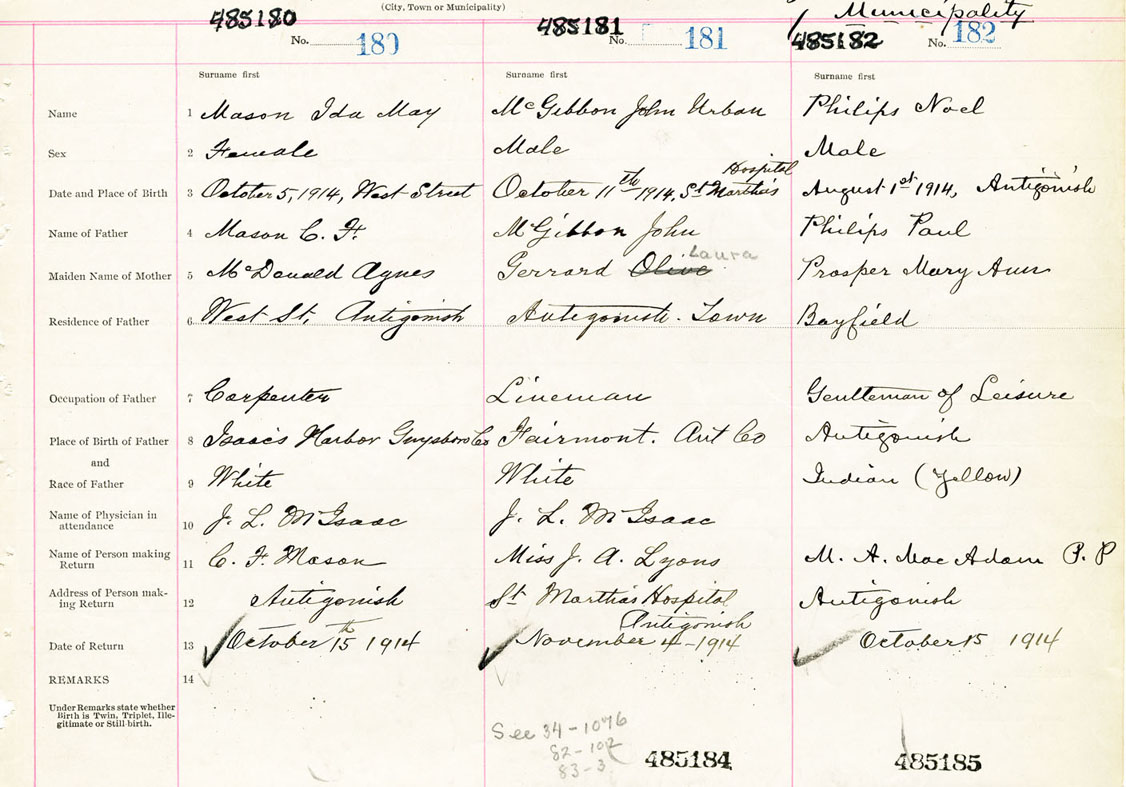 (City, Town or Municipality)
Municipality
485180 485181 485182
No. 180 No. 181 No. 182
Surname first Surname first Surname first
Name 1 Mason Ida May McGibbon John Urban Philips Noel
Sex 2 Female Male Male
Hospital
Date and Place of Birth 3 October 5, 1914, West Street October 11th 1914, St Martha's August 1st 1914, Antigonish
Name of Father 4 Mason C. F. McGibbon John Philips Paul
Laura
Maiden Name of Mother 5 McDonald Agnes Gerrard Olive Prosper Mary Ann
Residence of Father 6 West St, Antigonish Antigonish. Town Bayfield
Occupation of Father 7 Carpenter Lineman Gentleman of Leisure
Place of Birth of Father 8 Isaac's Harbor Guysboro Co Fairmont. Ant Co Antigonish
and
Race of Father 9 White White Indian (Yellow)
Name of Physician in
attendance 10 J. L. McIsaac J. L. McIsaac
Name of Person making
Return 11 C. F. Mason Miss J. A. Lyons M. A. Mac Adam P. P
Address of Person mak-
ing Return 12 Antigonish St Martha's Hospital Antigonish
Antigonish
Date of Return 13 October 15th 1914 November 4-1914 October 15 1914
REMARKS 14
Under Remarks state whether
Birth is Twin, Triplet, Ille-
gitimate or Still-birth.
See 34-1076
82-102
83-3
485184 485185